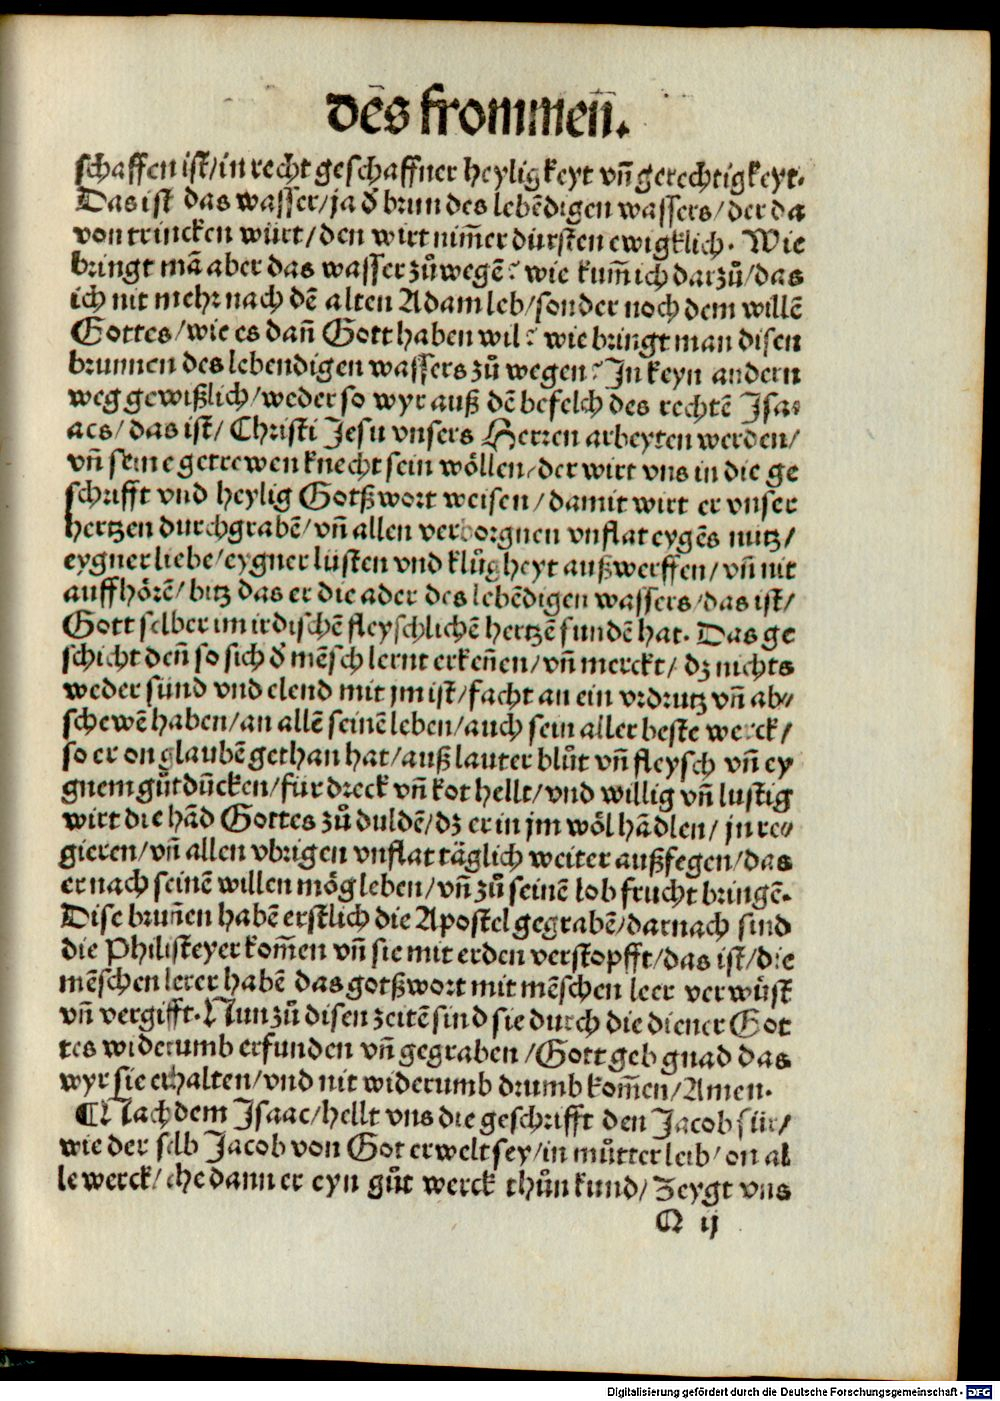 dēs frommeñ.
schaffen ist/in recht geschaffner heyligkeyt vñ gerechtigkeyt.
Das ist das wasser/ja d̄ brun des lebēdigen wassers/der da
von trincken würt/den wirt nim̄er dürsten ewigklich. Wie
bringt mā aber das wasser zůwegē? wie kum̄ ich darzů/das
ich nit mehr nach dē alten Adam leb/sonder noch dem willē
Gottes/wie es dañ Gott haben wil? wie bringt man disen
brunnen des lebendigen wassers zů wegen? In keyn andern
weg gewißlich/weder so wyr auß dē befelch des rechtē Isa⸗
acs/das ist/Christi Jesu vnsers Herren arbeyten werden/
vñ seine getrewen knecht sein wöllen/der wirt vns in die ge
schrifft vnd heylig Gotßwort weisen/damit wirt er vnser
hertzen durchgrabē/vñ allen verborgnen vnflat eygēs nutz/
eygner liebe/eygner lüsten vnd klůgheyt außwerffen/vñ nit
auffhörē/bitz das er die ader des lebēdigen wassers/das ist/
Gott selber im irdischē fleyschlichē hertzē fundē hat. Das ge
schicht deñ so sich d̄ mēsch lernt erkeñen/vñ merckt/dz nichts
weder sünd vnd elend mit jm ist/facht an ein vrdrutz vñ ab⸗
schewē haben/an allē seinē leben/auch sein aller beste werck/
so er on glaubē gethan hat/auß lauter blůt vñ fleysch vñ ey
gnem gůtdüncken/für dreck vñ kot hellt/vnd willig vñ lustig
wirt die hād Gottes zů duldē/dz er in jm wöl hādlen/jn re⸗
gieren/vñ allen vbrigen vnflat täglich weiter außfegen/das
er nach seinē willen mög leben/vñ zů seinē lob frucht bringē.
Dise bruñen habē erstlich die Apostel gegrabē/darnach sind
die Philisteyer kom̄en vñ sie mit erden verstopfft/das ist/die
mēschen lerer habē das gotßwort mit mēschen leer verwüst
vñ vergifft. Nun zů disen zeitē sind sie durch die diener Got
tes widerumb erfunden vñ gegraben/Gott geb gnad das
wyr sie erhalten/vnd nit widerumb drumb kom̄en/Amen.
¶Nach dem Isaac/hellt vns die geschrifft den Jacob für/
wie der selb Jacob von Got erwelt sey/in můtter leib/on al
le werck/ehe dann er eyn gůt werck thůn kund/Zeygt vns
Q ij
Digitalisierung gefördert durch die Deutsche Forschungsgemeinschaft - DFG